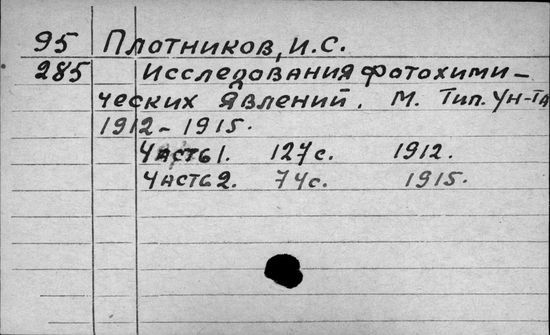 95 Плотников, И.С.
285 Исследования фотохими-
ческих явлений. М. Тип. Ун-та
1912-1915.
Часть 1. 127с. 1912.
Часть 2. 74с. 1915.